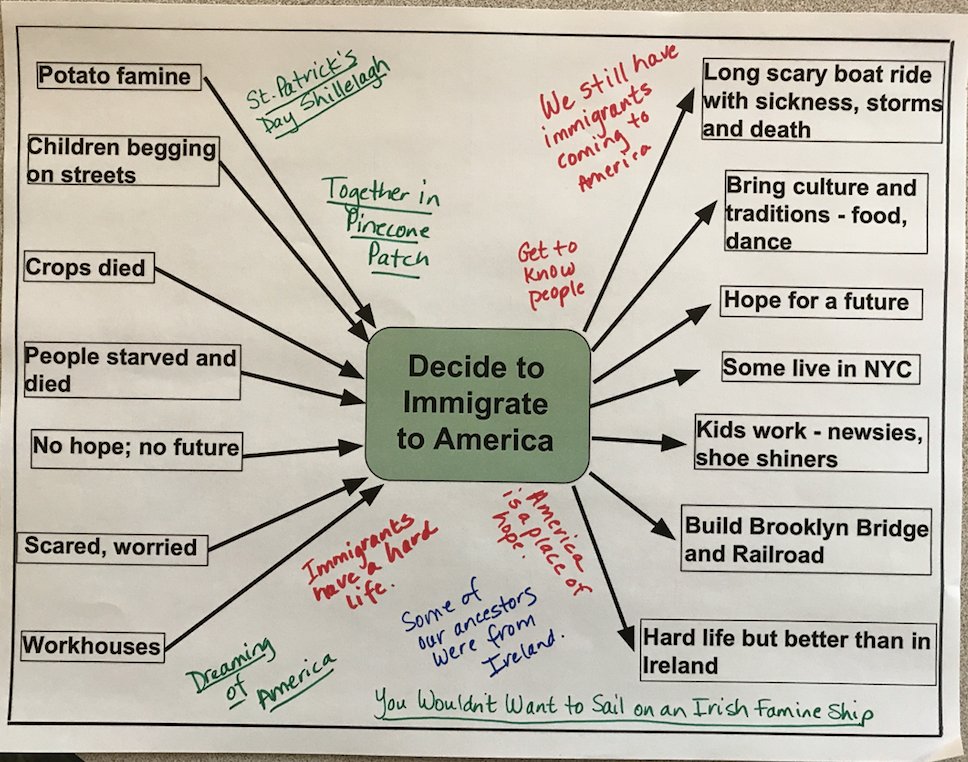 Potato famine
Children begging
on streets
Crops died
People starved and
died
No hope; no future
Scared, worried
Workhouses
St. Patrick's
Day Shillelagh
Together in
Pinecone
Patch
We still have
immigrants
coming to
America
Get to
know
people
Decide to
Immigrate
to America
Immigrants
have a hard
life.
America
is a place of
hope.
Some of
our ancestors
were from
Ireland.
Dreaming
of America
You Wouldn't Want to Sail on an Irish Famine Ship
Long scary boat ride
with sickness, storms
and death
Bring culture and
traditions - food,
dance
Hope for a future
Some live in NYC
Kids work - newsies,
shoe shiners
Build Brooklyn Bridge
and Railroad
Hard life but better than in
Ireland